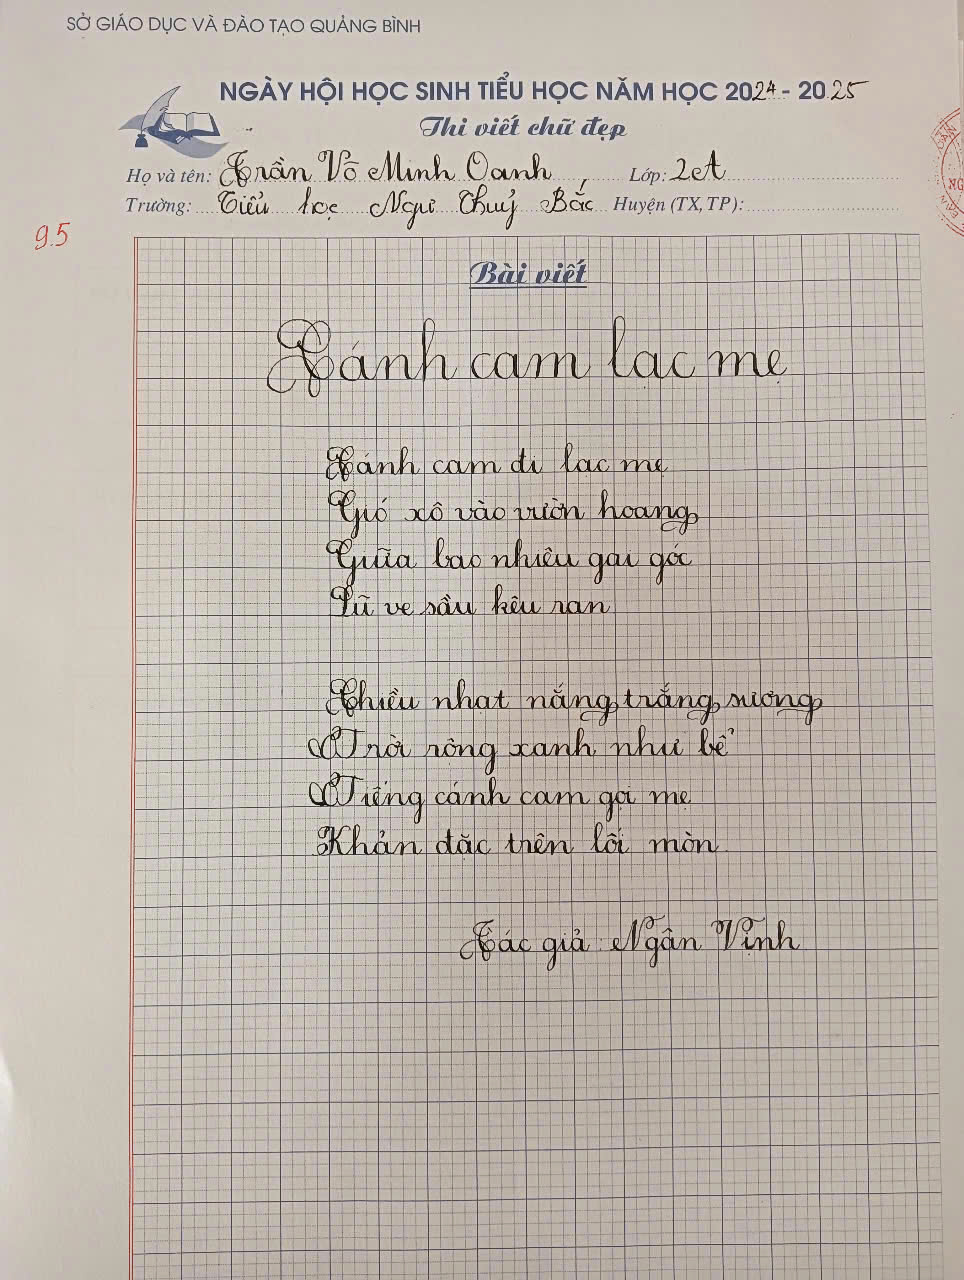 SỞ GIÁO DỤC VÀ ĐÀO TẠO QUẢNG BÌNH
NGÀY HỘI HỌC SINH TIỂU HỌC NĂM HỌC 2024 - 2025
Thi viết chữ đẹp
Họ và tên: Trần Võ Minh Oanh Lớp: 2A
Trường: Tiểu học Ngư Thuỷ Bắc Huyện (TX, TP):
9.5
Bài viết
Cánh cam lạc mẹ
Cánh cam đi lạc mẹ
Gió xô vào vườn hoang
Giữa bao nhiêu gai góc
Lũ ve sầu kêu ran
Chiều nhạt nắng trắng sương
Trời rộng xanh như bể
Tiếng cánh cam gọi mẹ
Khản đặc trên lối mòn
Tác giả: Ngân Vịnh